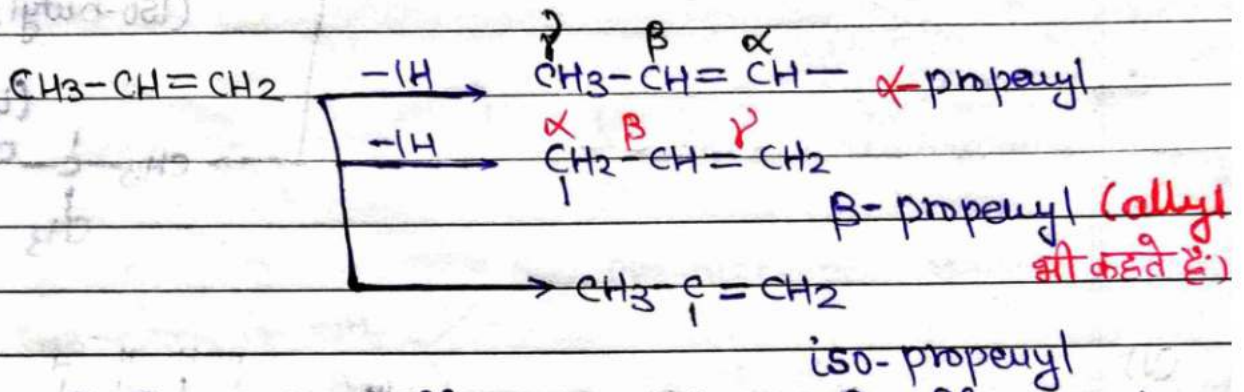 γ β α
CH3-CH=CH2 -1H CH3-CH=CH- α-propenyl
α β γ
-1H CH2-CH=CH2
β-propenyl (allyl
भी कहते हैं।)
CH3-C=CH2
iso-propenyl